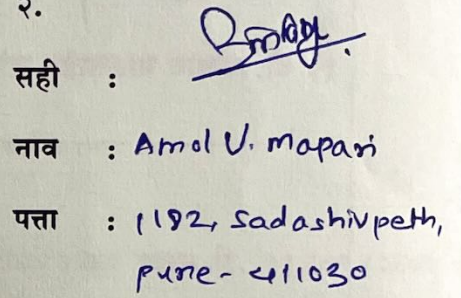 २.
सही :
नाव : Amol V. Mapari
पत्ता : 1182, Sadashivpeth,
Pune - 411030